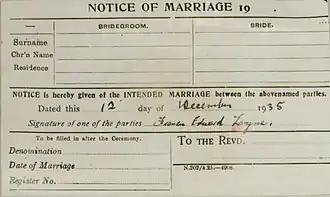 NOTICE OF MARRIAGE 19
BRIDEGROOM. BRIDE.
Surname
Chr'n Name
Residence
NOTICE is hereby given of the INTENDED MARRIAGE between the abovenamed parties.
Dated this 12 day of December 1935
Signature of one of the parties Francis Edward
To be filled in after the Ceremony.
Denomination
Date of Marriage
Register No.
TO THE REVD.